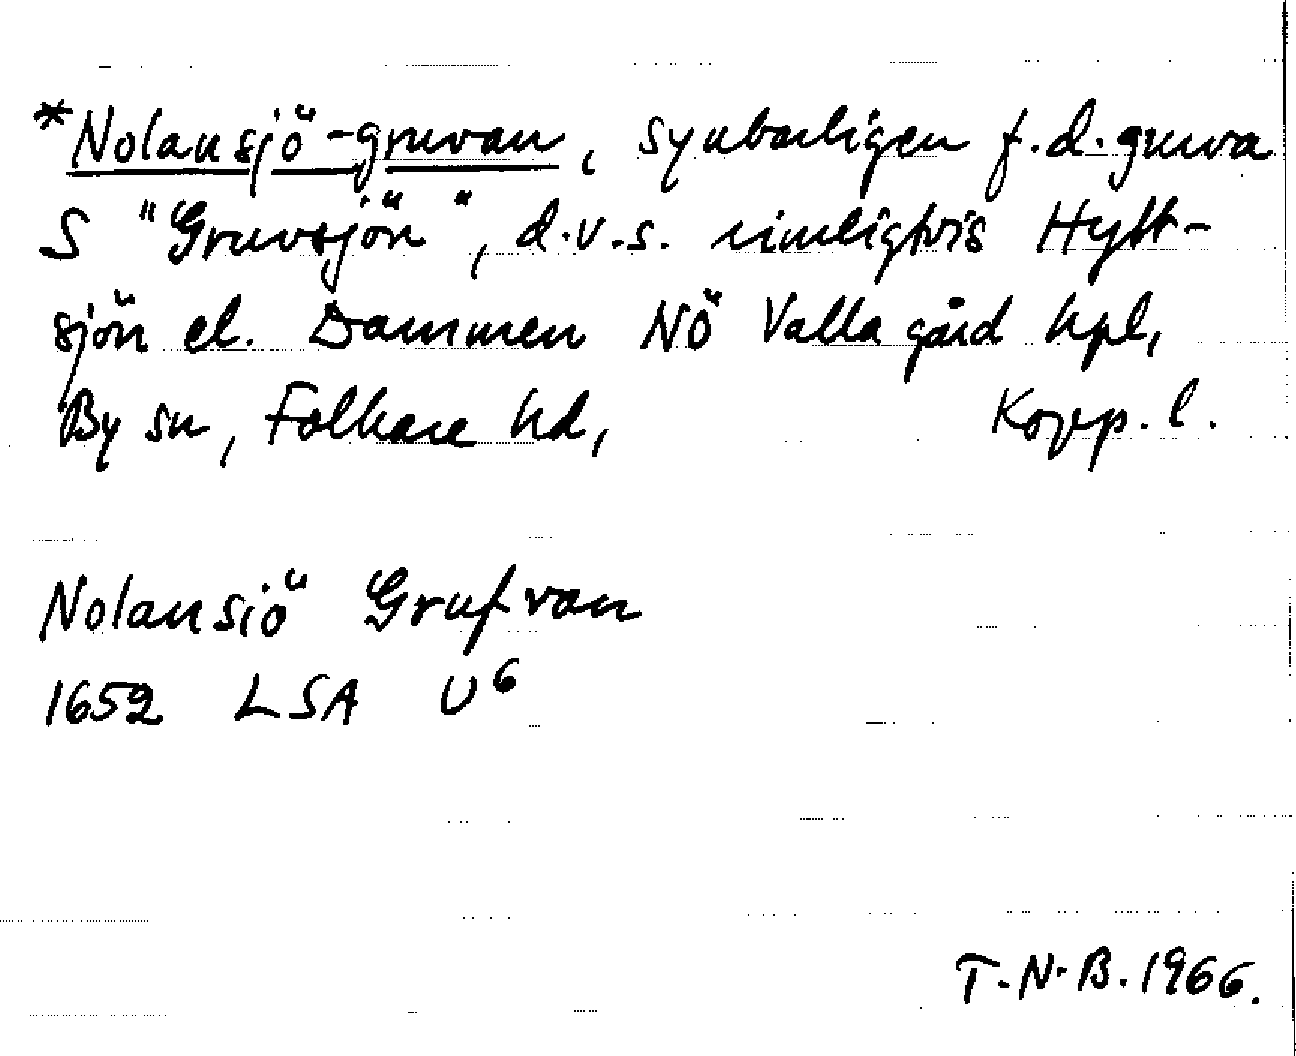 *Nolansjö-gruvan, synbarligen f.d. gruva
S "Gruvsjön", d.v.s. rimligtvis Hytt-
sjön el. Dammen NÖ Valla gård hpl,
By sn, Folkare hd, Kopp. l.
Nolansiö Grufvan
1652 LSA U6
T.N.B. 1966.